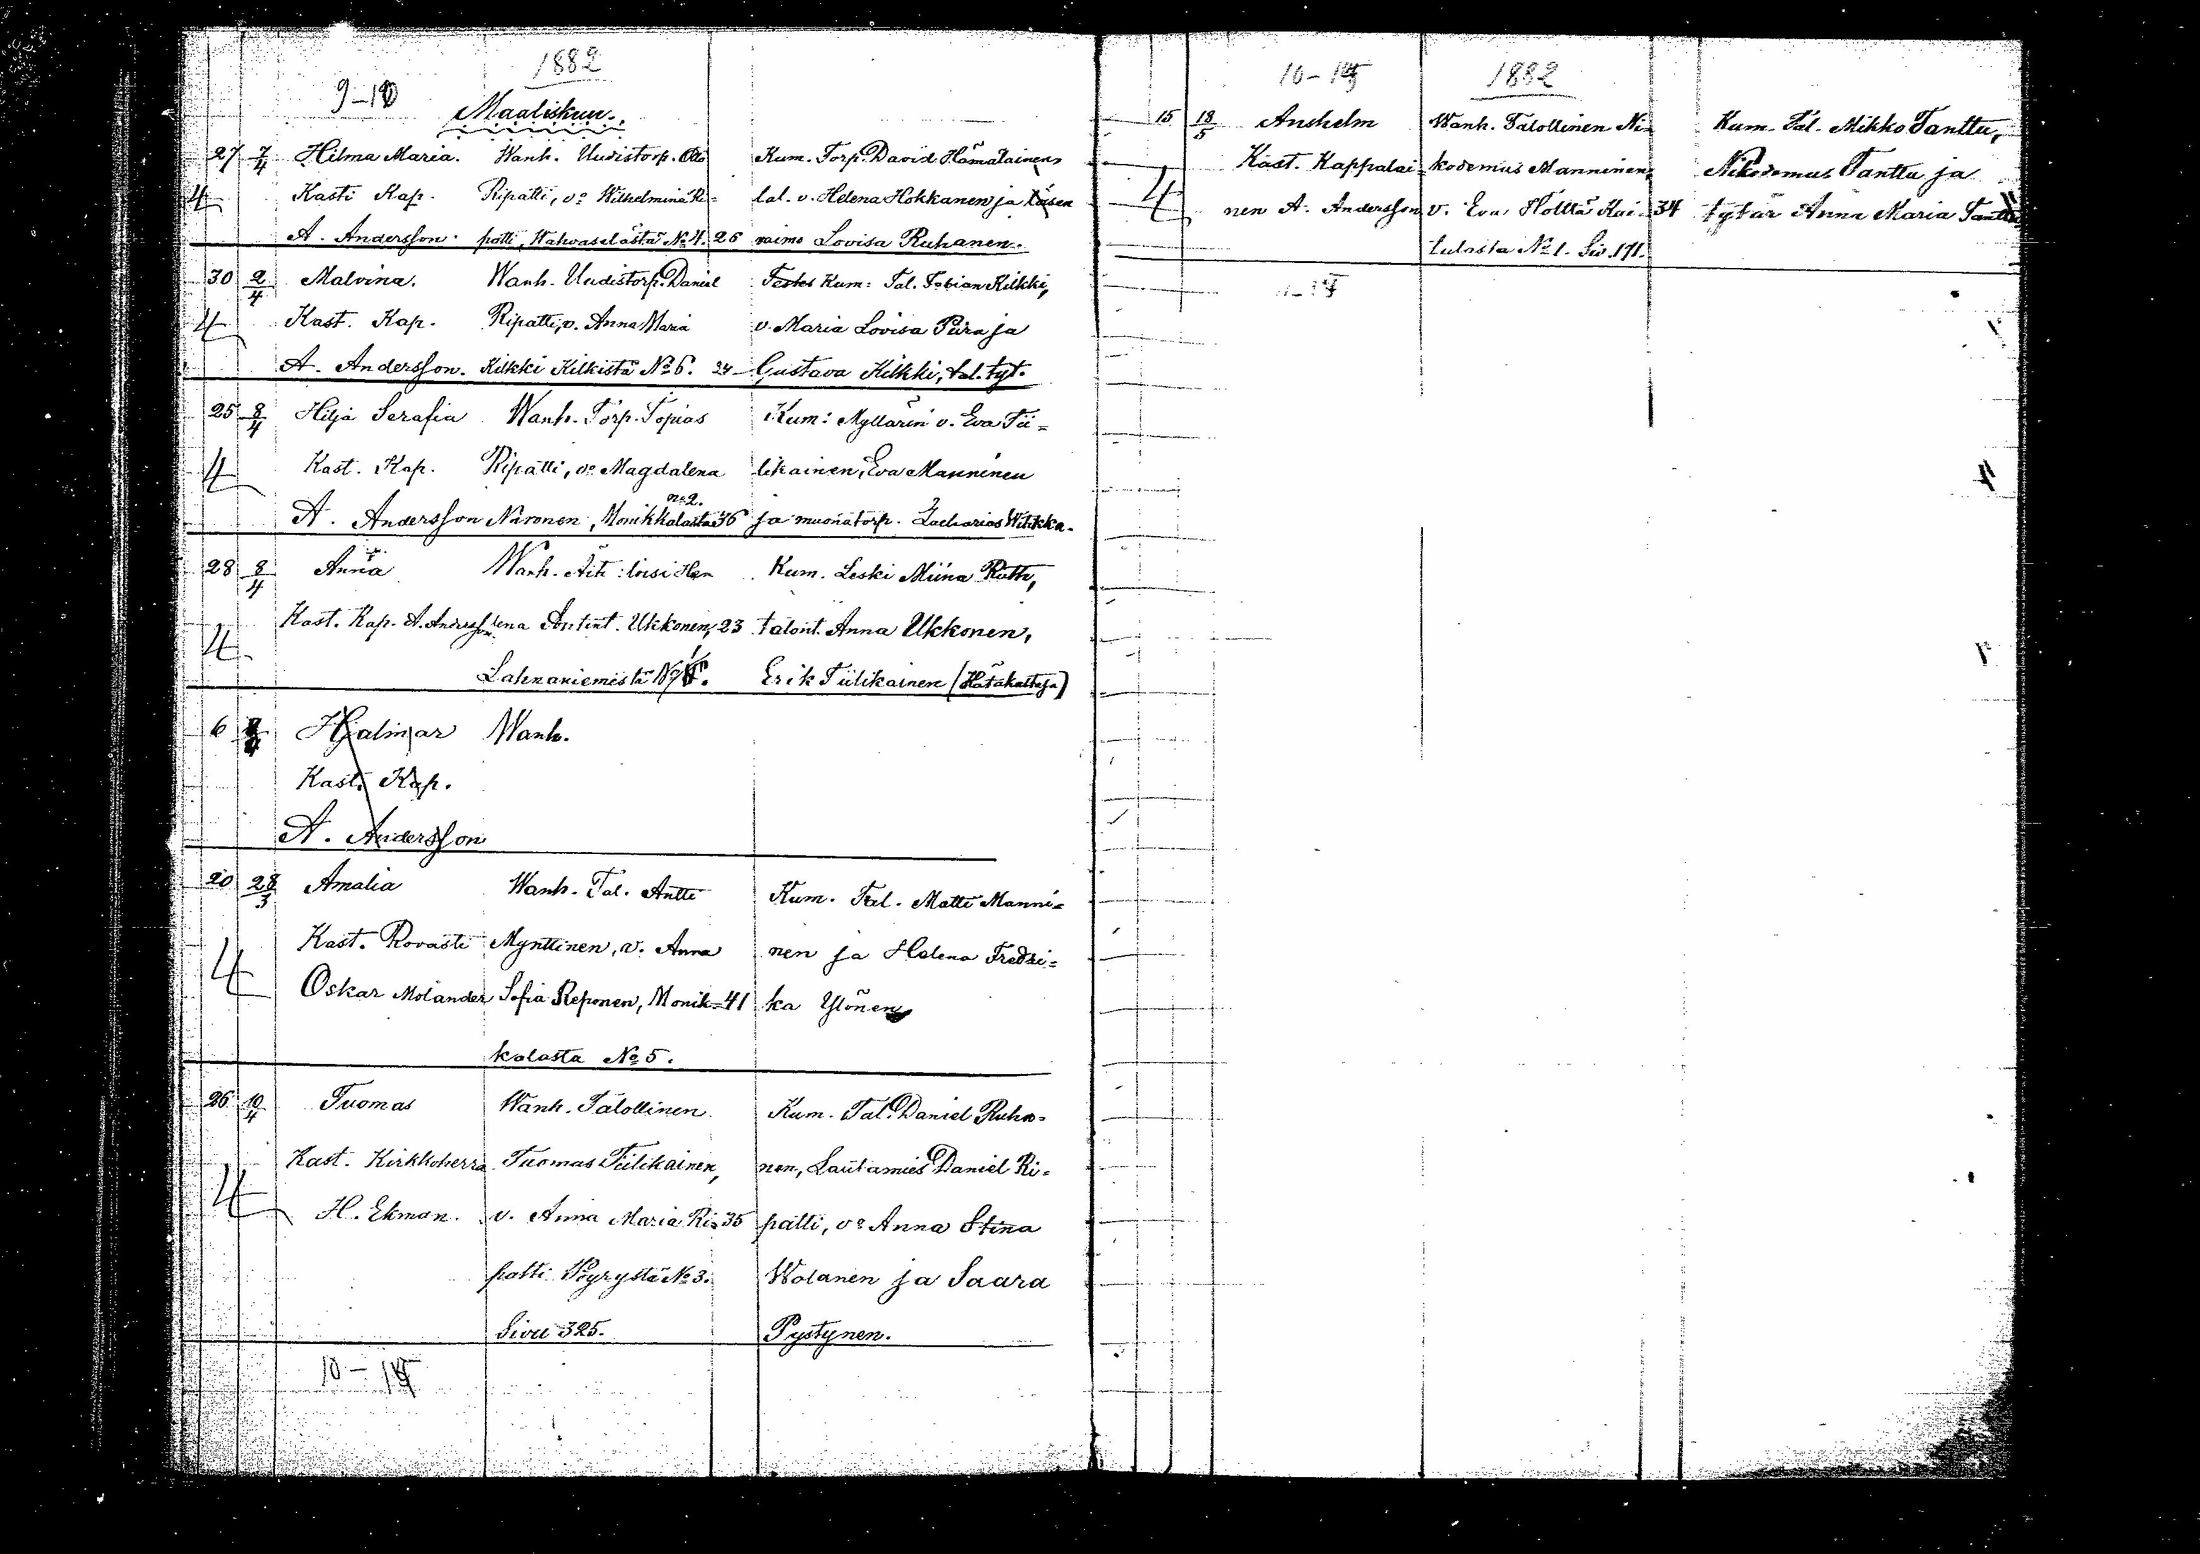 1882
9-10
Maaliskun.
27 7/4 Hilma Maria. Wanh. Uudistorp. Otto Kum. Torp. David Hämäläinen,
4 Kasti Kap. Ripatti, vo Wilhelmina Ri= tal. v. Helena Hokkanen ja
A. Andersson. patti, Wahvaselästä No 4. 26 vaimo Lovisa Ruhanen.
30 2/4 Malvina. Wanh. Uudistorp. Daniel Testes Kum: Tal. Fabian Kilkki,
4 Kast. Kap. Ripatti, v. Anna Maria v. Maria Lovisa Piira ja
A. Andersson. Kilkki Kilkistä No 6. 24 Gustava Kilkki, tal. tyt.
25 8/4 Hilja Serafia Wanh. Torp. Topias Kum: Myllärin v. Eva Tii=
4 Kast. Kap. Ripatti, vo Magdalena likainen, Eva Manninen
no 2.
A. Andersson Naronen, Monikkalasta 36 ja muonatorp. Zacharias Wihkko.
28 8/4 Anna Wanh. Äiti: loisi Hen Kum. Leski Miina Ruth,
4 Kast. Kap. A. Andersson lena Antint. Ukkonen, 23 talont. Anna Ukkonen,
Lahnaniemistä No Erik Tiilikainen (Hätäkastaja)
6 8/4 Hjalmar Wanh.
Kast. Kap.
A. Andersson
20 28/3 Amalia Wanh. Tal. Antti Kum. Tal. Matti Manni=
4 Kast. Rovasti Mynttinen, v. Anna nen ja Helena Fredri=
Oskar Molander Sofia Reponen, Monik= 41 ka Ylönen
kalasta No 5.
26 10/4 Tuomas Wanh. Talollinen Kum. Tal. Daniel Ruha=
4 Kast. Kirkkoherra Tuomas Tiilikainen, nen, Lautamies Daniel Ri=
H. Ekman. v. Anna Maria Ri= 35 patti, vo Anna Stina
patti Pöyrystä No 3. Wolanen ja Saara
Sivu 325. Pystynen.
10-
10- 1882
15 18/5 Anshelm Wanh. Talollinen Ni= Kum. Tal. Mikko Tanttu,
Kast. Kappalai= kodemus Manninen, Nikodemus Tanttu ja
4 nen A. Andersson v. Eva Hölttä Kai= 34 tytär Anna Maria Tanttu
tulasta No 1. Siv. 171.